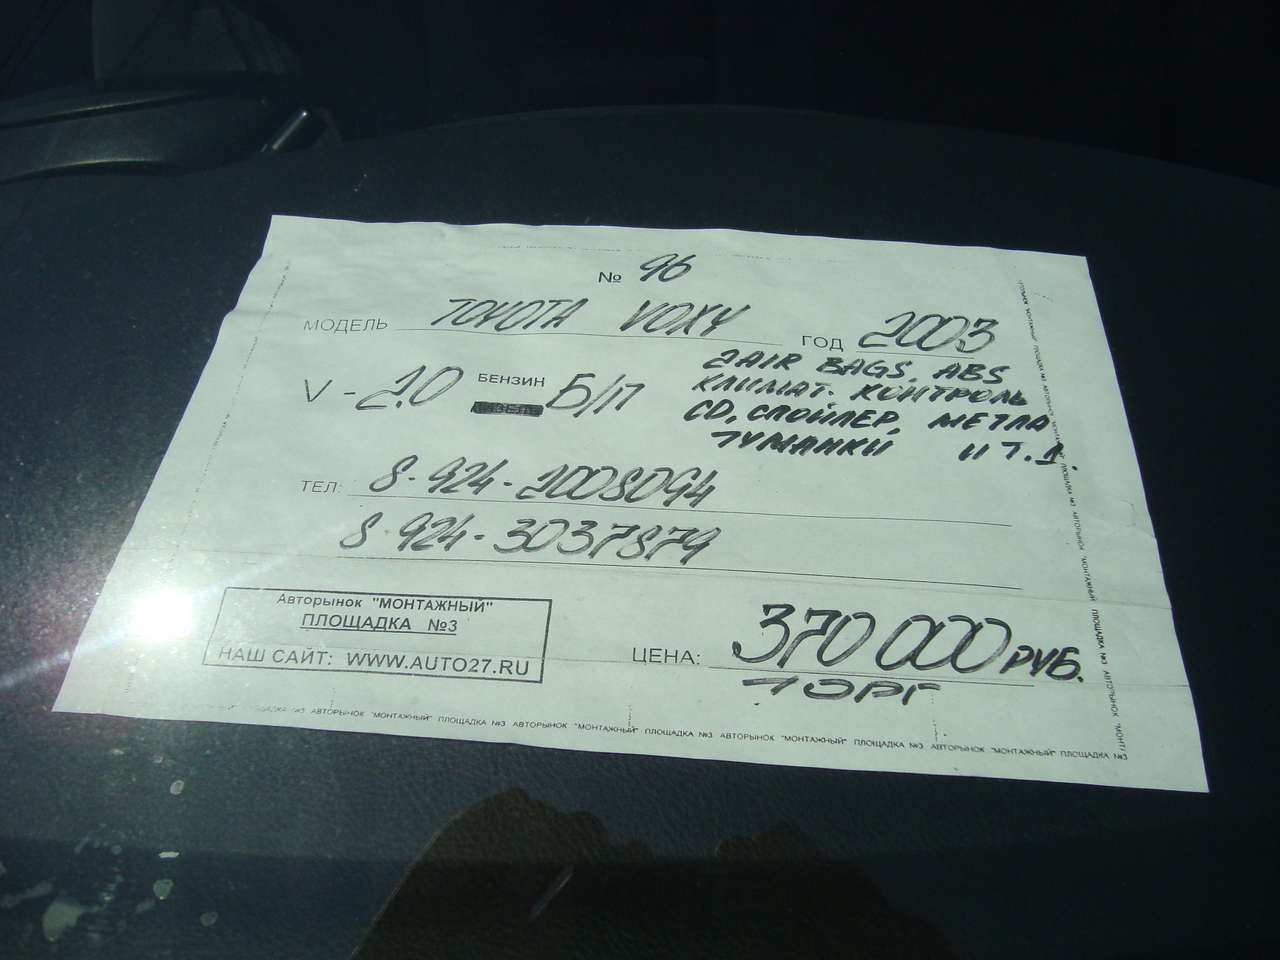 № 96
МОДЕЛЬ TOYOTA VOXY ГОД 2003
V - 2.0 БЕНЗИН Б/П
2 AIR BAGS, ABS
КЛИМАТ. КОНТРОЛЬ
CD, СПОЙЛЕР, МЕТЛА
ТУМАНКИ И Т.Д.
ТЕЛ: 8-924-2008094
8-924-3037879
Авторынок "МОНТАЖНЫЙ"
ПЛОЩАДКА №3
НАШ САЙТ: WWW.AUTO27.RU
ЦЕНА: 370 000 РУБ.
ТОРГ
АВТОРЫНОК "МОНТАЖНЫЙ" ПЛОЩАДКА №3 АВТОРЫНОК "МОНТАЖНЫЙ" ПЛОЩАДКА №3 АВТОРЫНОК "МОНТАЖНЫЙ" ПЛОЩАДКА №3 АВТОРЫНОК "МОНТАЖНЫЙ" ПЛОЩАДКА №3